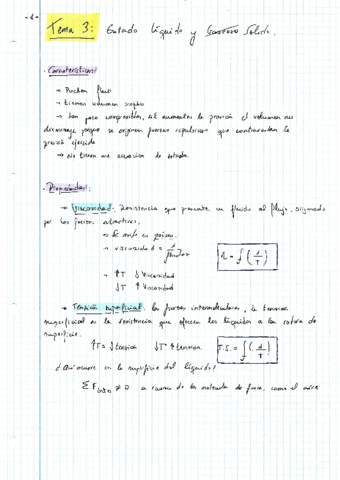 -1-
Tema 3: Estado líquido y Estado Sólido.
· Características:
→ Pueden fluir
→ Tienen volumen propio
→ Son poco compresibles, al aumentar la presión el volumen no
disminuye porque se originan fuerzas repulsivas que contrarrestan la
presión ejercida
→ No tienen una ecuación de estado.
· Propiedades:
→ Viscosidad: Resistencia que presenta un fluido al flujo, originado
por las fuerzas atractivas.
→ Se mide en poises
→ viscosidad = 1/fluidez
→ ↑T ↓ Viscosidad
↓T ↑ Viscosidad
η = f (1/T)
→ Tensión superficial: las fuerzas intermoleculares, la tensión
superficial es la resistencia que ofrecen los líquidos a la rotura de
superficie.
↑T = ↓ tensión ↓T ↑ tensión. T.S. = f (1/T)
¿Qué ocurre en la superficie del líquido?
Σ F ≠ 0 a causa de la molécula de fuera, como el aire